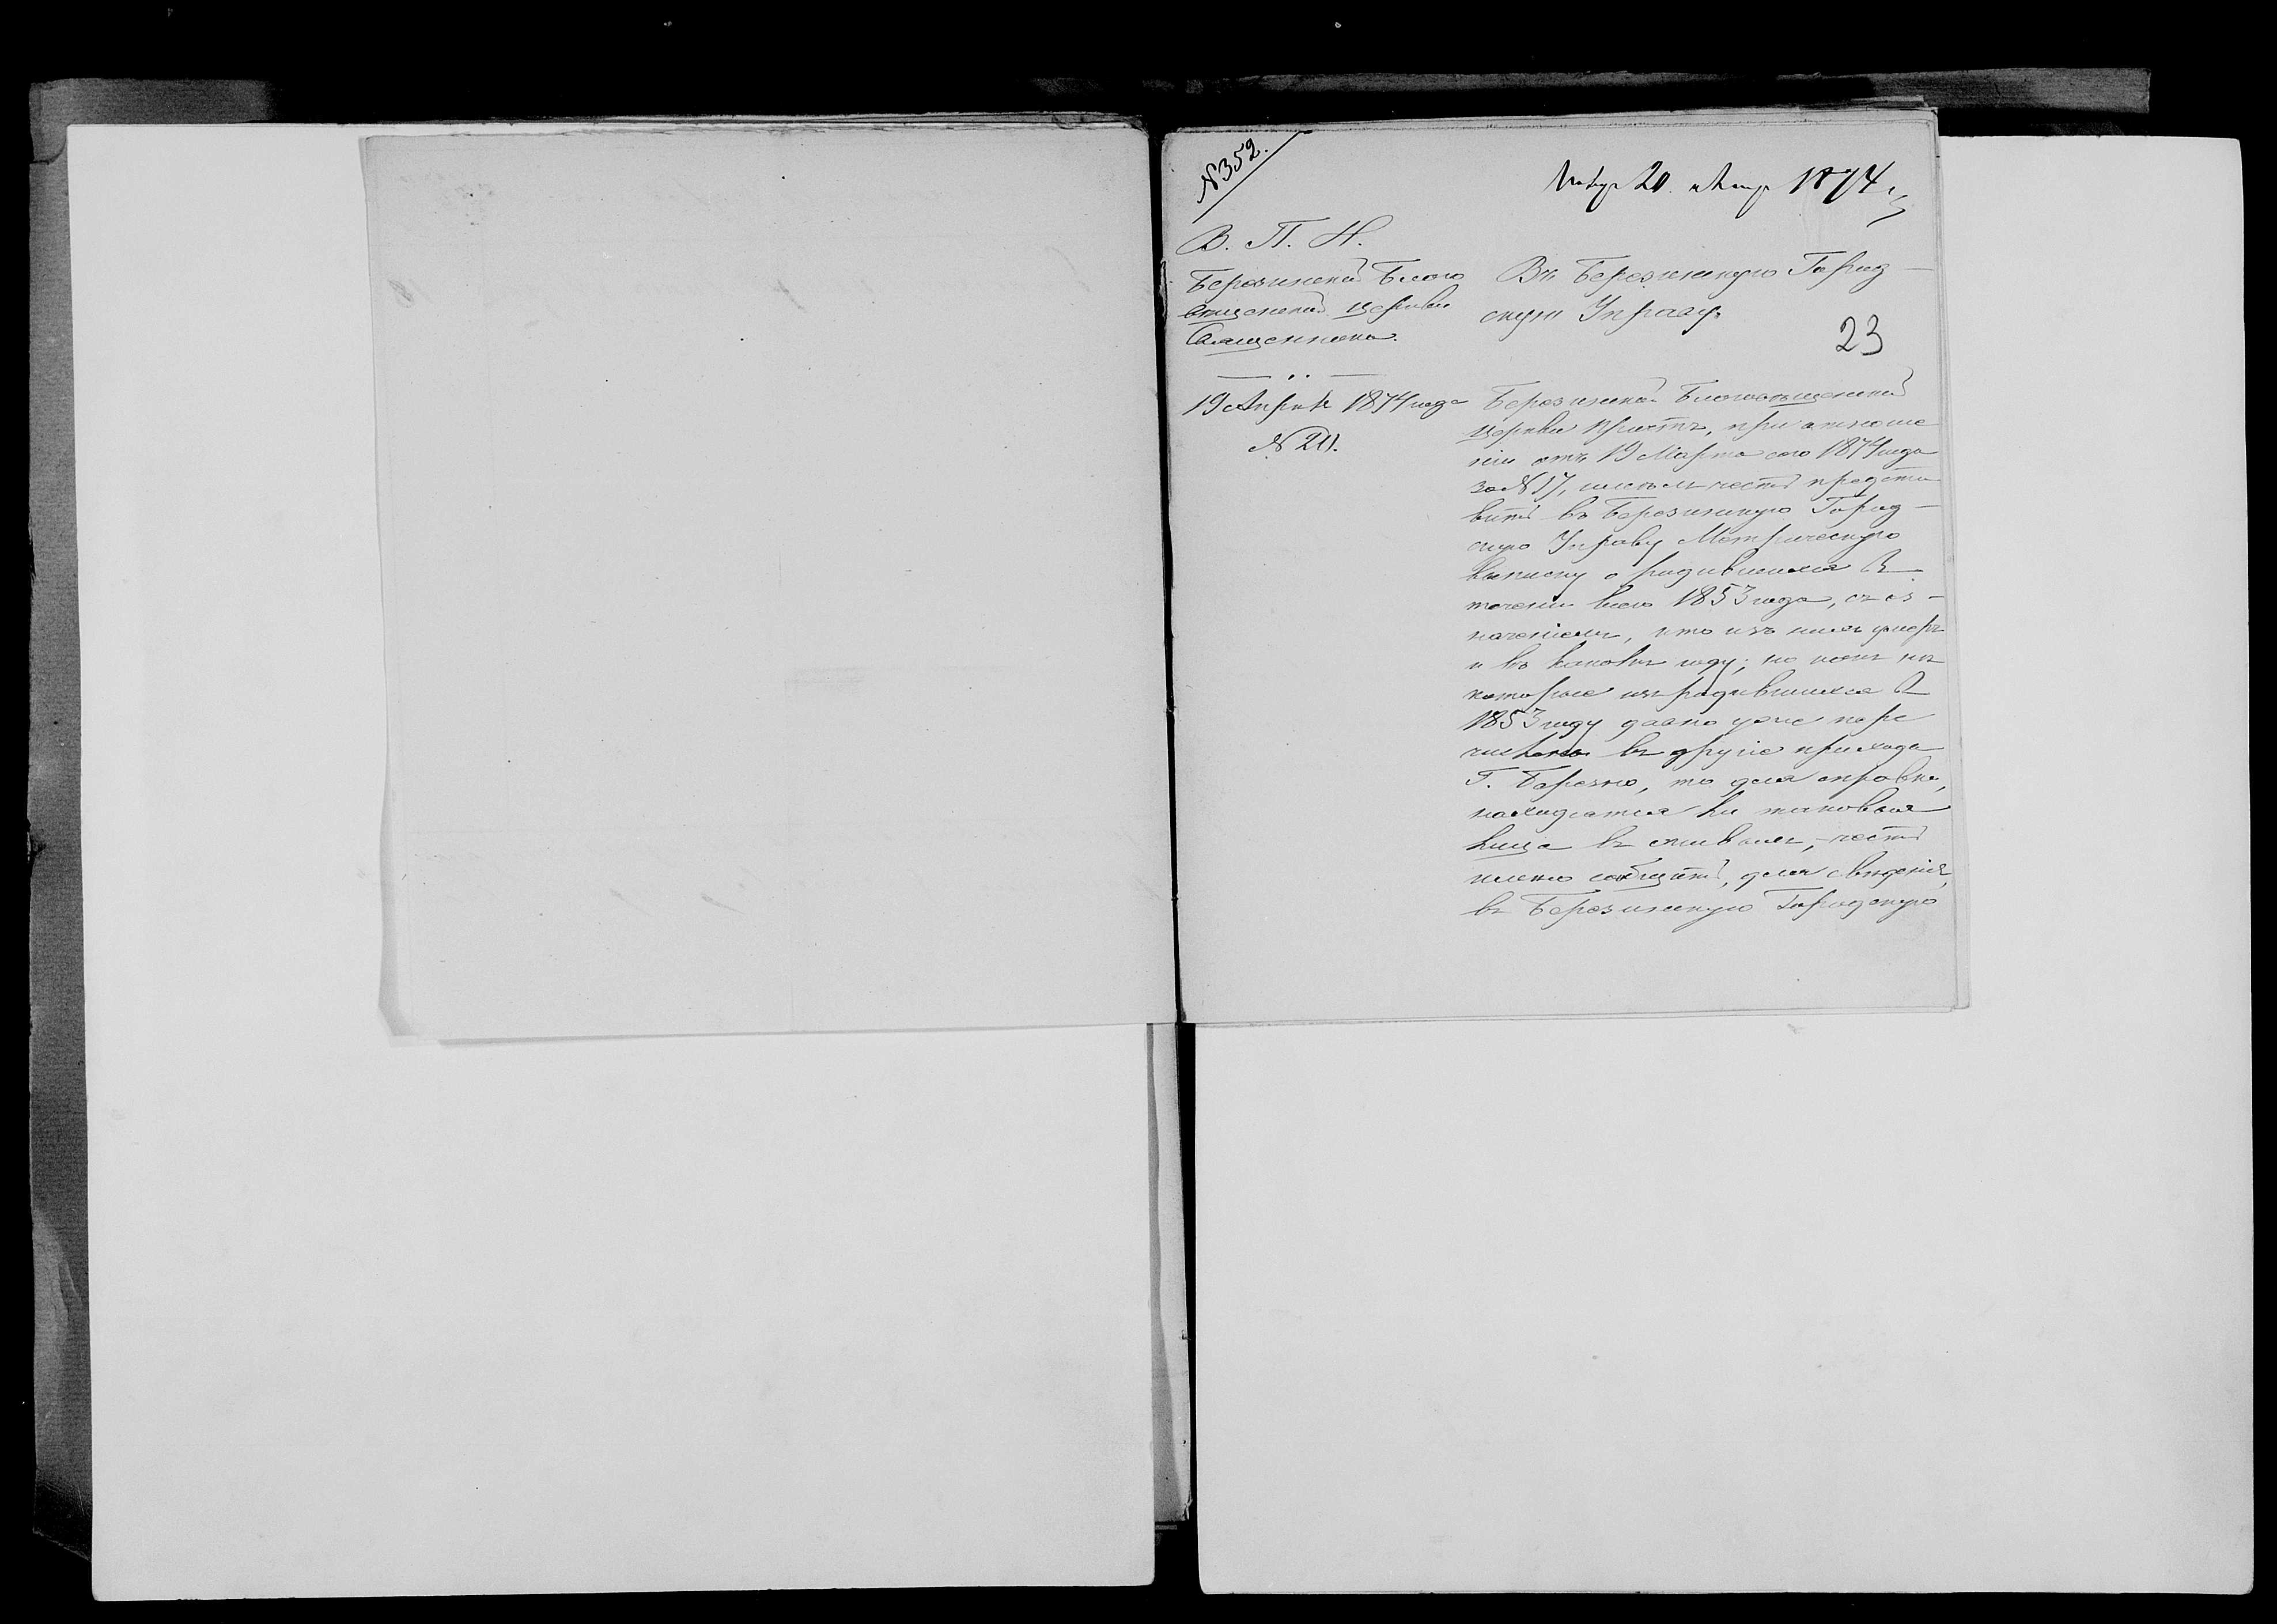 №352.
20 Апр 1874 г
В. П. И.
Березинской Благо
вѣщенской церкви
Священника.
19 Апрѣля 1874 года
№ 20.
Въ Березинскую Город-
скую Управу.
23
Березинской Благовѣщенской
церкви Причтъ, при отноше
ніи отъ 19 Марта сего 1874 года
за № 17, имѣлъ честь предста
вить въ Березинскую Город-
скую Управу Метрическую
выписку о родившихся въ
теченіи всего 1853 года, съ оз-
наченіемъ, кто изъ нихъ умеръ
и въ какомъ году; но какъ нѣ
которые изъ родившихся въ
1853 году давно уже пере
числены въ другіе прихода
Г. Березно, то для справки,
находятся ли таковыя
лица въ живыхъ, честь
имѣю сообщить, для свѣденія,
въ Березинскую Городскую